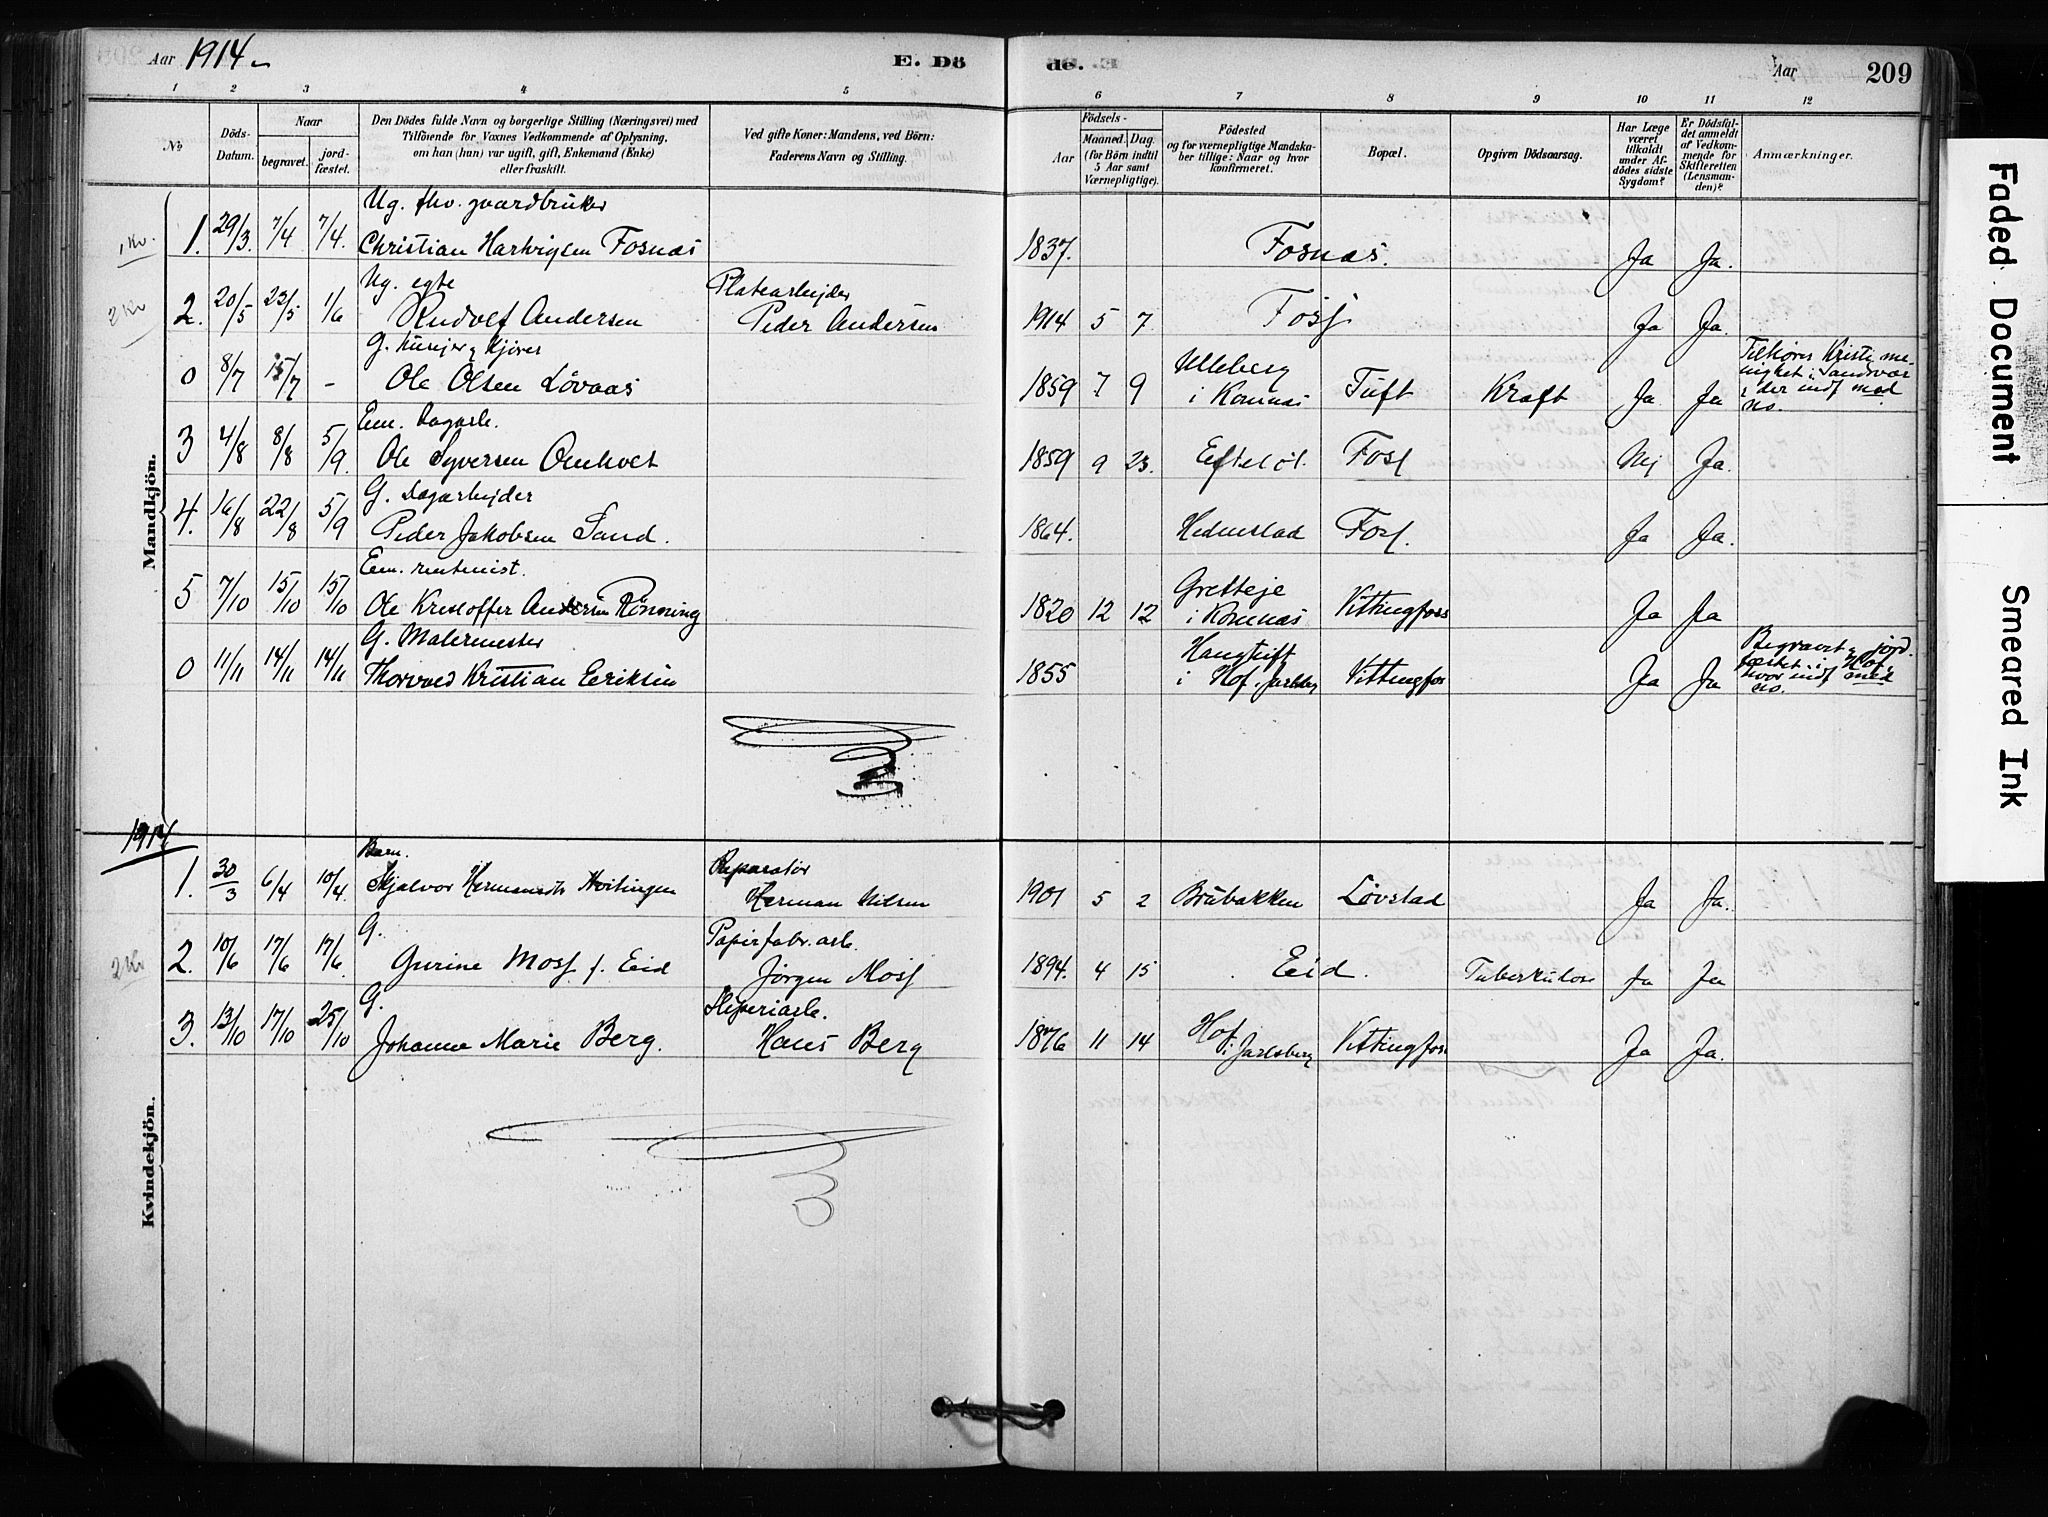 Aar 1914 E. Dö de. Aar 209
1 2 3 4 5 6 7 8 9 10 11 12
No
Döds-Datum.
Naar begravet. jordfæstet.
Den Dödes fulde Navn og borgerlige Stilling (Næringsvei) med
Tilföiende for Voxnes Vedkommende af Oplysning,
om han (hun) var ugift, gift, Enkemand (Enke)
eller fraskilt.
Ved gifte Koner: Mandens, ved Börn:
Faderens Navn og Stilling.
Födsels-
Aar Maaned. Dag.
(for Börn indtil
5 Aar samt
Værnepligtige).
Födested
og for værnepligtige Mandska-
ber tillige: Naar og hvor
konfirmeret.
Bopæl.
Opgiven Dödsaarsag.
Har Læge
været
tilkaldt
under Af-
dödes sidste
Sygdom?
Er Dödsfal-
det anmeldt
af Vedkom-
mende for
Skifteretten
(Lensman-
den)?
Anmærkninger.
Mandkjön.
1 Kr.
Ug. fhv. gaardbruker
1. 29/3. 7/4 7/4. Christian Hartvigsen Fosnæs 1837. Fosnæs. Ja Ja.
2 Kr
Ug. egte Platearbejder
2. 20/5 23/5 1/6 Andersen Peder Andersen 1914 5 7 Foss Ja Ja.
G. husejer & kjører
0 8/7 15/7 - Ole Olsen Løvaas 1859 7 9 Ulleberg i Komnæs Tuft Kræft Ja Ja Tilhører Kristi me-
nighet i Sandsvær
der indf med
no.
Em. Dagarb.
3 4/8 8/8 5/9. Ole Syversen Omholt 1859 9 23. Efteløt Foss Nej Ja.
G. Dagarbejder
4. 16/8 22/8 5/9 Peder Jakobsen Sand. 1864. Hedenstad Foss. Ja Ja.
Em. rentenist.
5 7/10 15/10 15/10 Ole Kristoffer Andersen Rönning 1820 12 12 i Komnæs Vittingfoss Ja Ja
G. Malermester
0 11/11 14/11 14/11 Thorvald Kristian Eriksen 1855 i Hof, Jarlsberg Vittingfos Ja Ja Begravet & jord-
fæstet i Hof,
hvor indf med
no.
1914
Kvindekjön.
Barn. Reparatør
1. 30/3 6/4 10/4. Hermansdtr Hvitingen Herman Nilsen 1901 5 2 Brubakken Løvstad Ja Ja.
2 Kr
G. Papirfabr.arb.
2. 10/6 17/6 17/6. Gurine Moss f. Eid Jørgen Moss 1894. 4 15 Eid. Tuberkulose Ja Ja
G. Sliperiarb.
3. 13/10 17/10 25/10 Johanne Marie Berg. Hans Berg 1876 11 14 Hof i Jarlsberg Vittingfos Ja Ja.
Faded Document
Smeared Ink